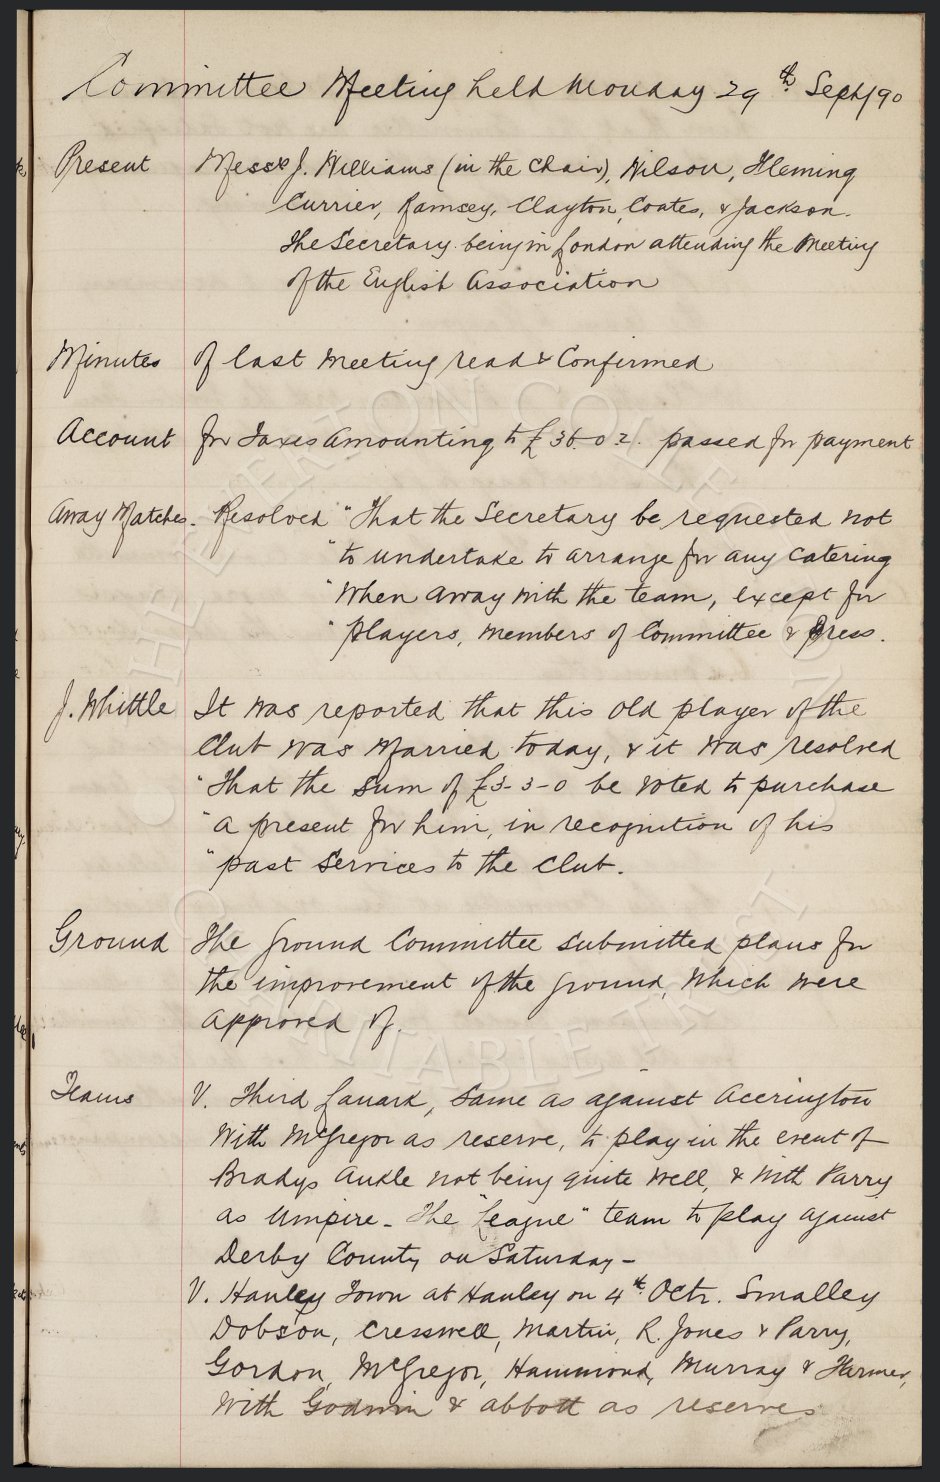 Committee Meeting held Monday 29th Sept/90
Present Messrs J. Williams (in the Chair), Wilson, Fleming
Currier, Ramsey, Clayton, Coates, & Jackson.
The Secretary being in London attending the Meeting
of the English Association
Minutes of last Meeting read & Confirmed
Account for Taxes Amounting to £36.0.2. passed for payment
Away Matches. Resolved "That the Secretary be requested not
"to undertake to arrange for any Catering
"When away with the team, except for
"players, members of Committee & Press.
J. Whittle It was reported that this old player of the
Club was Married today, & it was resolved
"That the Sum of £3-3-0 be voted to purchase
"a present for him, in recognition of his
"past Services to the Club.
Ground The Ground Committee submitted plans for
the improvement of the ground, which were
approved of.
Teams V. Third Lanark, Same as against Accrington
With McGregor as reserve, to play in the event of
Bradys Ankle not being quite well, & with Parry
as Umpire - The "League" team to play against
Derby County on Saturday -
V. Hanley Town at Hanley on 4th Octr. Smalley
Dobson, Cresswell, Martin, R. Jones & Parry,
Gordon, McGregor, Hammond, Murray & Harmer,
With Godwin & abbott as reserves
THE EVERTON COLLECTION
CHARITABLE TRUST